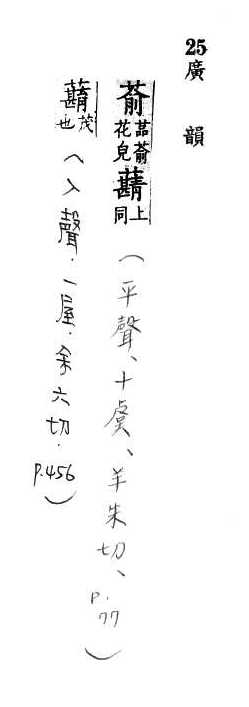 25廣韻
蕍 蕍花皃 蘛 上同（平聲、十虞、羊朱切、p.77）
蘛 茂也（入聲．一屋．余六切．p.456）